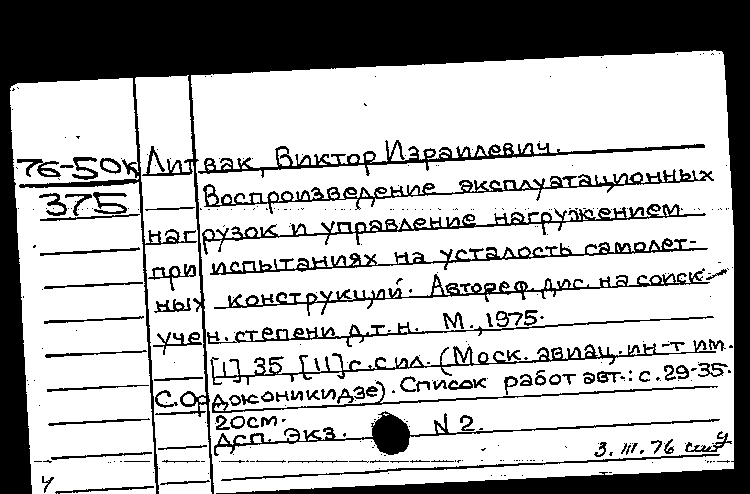 76-50к Литвак, Виктор Израилевич.
375 Воспроизведение эксплуатационных
нагрузок и управление нагружением
при испытаниях на усталость самолет-
ных конструкций. Автореф. дис. на соиск.
учен. степени д.т.н. М., 1975.
[1], 35, [11] с. с ил. (Моск. авиац. ин-т им.
С. Орджоникидзе). Список работ авт.: с. 29-35.
20см.
Дсп. Экз. N 2.
3.III.76
ч